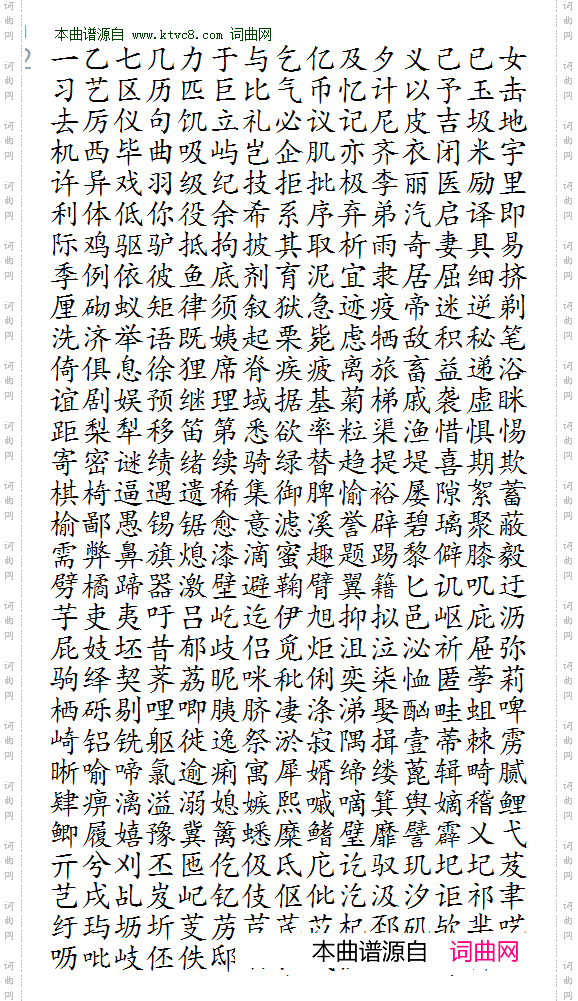 本曲谱源自 www.ktvc8.com 词曲网
一乙七几力于与乞亿及夕义己已女
习艺区历匹巨比气币忆计以予玉击
去厉仪句饥立礼必议记尼皮吉圾地
机西毕曲吸屿岂企肌亦齐衣闭米宇
许异戏羽级纪技拒批极李丽医励里
利体低你役余希系序弃弟汽启译即
际鸡驱驴抵拘披其取析雨奇妻具易
季例依彼鱼底剂育泥宜隶居屈细挤
厘砌蚁矩律须叙狱急迹疫帝迷逆剃
洗济举语既姨起栗毙虑牺敌积秘笔
倚俱息徐狸席脊疾疲离旅畜益递浴
谊剧娱预继理域据基菊梯戚袭虚眯
距梨犁移笛第悉欲率粒渠渔惜惧惕
寄密谜绩绪续骑绿替趋提堤喜期欺
棋椅逼遇遗稀集御脾愉裕屡隙絮蓄
榆鄙愚锡锯愈意滤溪誉辟碧璃聚蔽
需弊鼻旗熄漆滴蜜趣题踢黎僻膝毅
劈橘蹄器激壁避鞠臂翼籍匕讥叽迂
芋吏夷吁吕屹迄伊旭抑拟邑岖庇沥
屁妓坯昔郁歧侣觅炬沮泣泌祈屉弥
驹绎契荠荔昵咪秕俐奕柒恤匿荸莉
栖砾剔哩唧胰脐凄涤涕娶酗畦蛆啤
崎铝铣躯徙逸祭淤寂隅揖壹蒂棘雳
晰喻啼氯逾痢寓犀婿缔缕蓖辑畸腻
肆痹漓溢溺媳嫉熙嘁嘀箕舆嫡稽鲤
鲫履嬉豫冀篱蟋糜鳍璧靡譬霹乂弋
亓兮刈丕匜仡伋氐庀讫驭玑圮圯芨
芑戌乩岌屺钇伎伛仳汔汲汐讵祁聿
纡玙坜圻芰苈苣芪苡杞邳矶欤芈呓
呖吡岐伾佚邸
本曲谱源自 词曲网